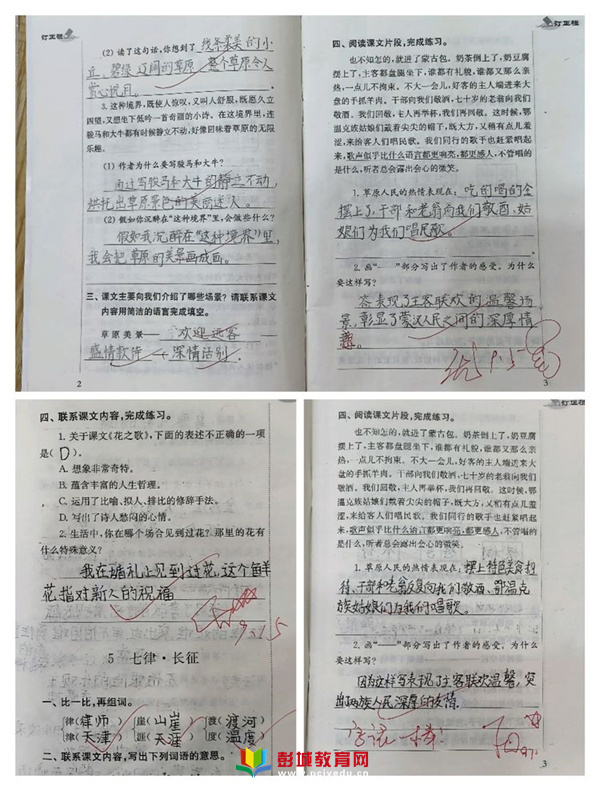 订正栏
(2) 读了这句话,你想到了 线条柔美的小
丘、碧绿辽阔的草原,整个草原令人
赏心悦目。
3. 这种境界,既使人惊叹,又叫人舒服,既愿久立
四望,又想坐下低吟一首奇丽的小诗。在这境界里,连
骏马和大牛都有时候静立不动,好像回味着草原的无限
乐趣。
(1) 作者为什么要写骏马和大牛?
通过写骏马和大牛的静立不动,
烘托出草原景色的美丽迷人。
(2) 假如你沉醉在“这种境界”里,会做些什么?
假如我沉醉在“这种境界”里,
我会把草原的美景画成画。
三、课文主要向我们介绍了哪些场景?请联系课文
内容用简洁的语言完成填空。
草原美景—— 欢迎远客
盛情款待 深情话别
2
订正栏
四、阅读课文片段,完成练习。
也不知怎的,就进了蒙古包。奶茶倒上了,奶豆腐
摆上了,主客都盘腿坐下,谁都有礼貌,谁都又那么亲
热,一点儿不拘束。不大一会儿,好客的主人端进来大
盘的手抓羊肉。干部向我们敬酒,七十岁的老翁向我们
敬酒。我们回敬,主人再举杯,我们再回敬。这时候,鄂
温克姑娘们戴着尖尖的帽子,既大方,又稍有点儿羞涩,
来给客人们唱民歌。我们同行的歌手也赶紧唱起
来,歌声似乎比什么语言都更响亮,都更感人,不管唱的
是什么,听者总会露出会心的微笑。
1. 草原人民的热情表现在:吃的喝的全
摆上了,干部和老翁向我们敬酒,姑
娘们为我们唱民歌。
2. 画“——”部分写出了作者的感受。为什么
要这样写?
答:表现了主客联欢的温馨场
景,彰显了蒙汉人民之间的深厚情
3
四、联系课文内容,完成练习。
1. 关于课文《花之歌》,下面的表述不正确的一项
是( D )。
A. 想象非常奇特。
B. 蕴含丰富的人生哲理。
C. 运用了比喻、拟人、排比的修辞手法。
D. 写出了诗人愁闷的心情。
2. 生活中,你在哪个场合见到过花?那里的花有
什么特殊意义?
我在婚礼上见到过花,这个鲜
花指对新人的祝福
5 七律·长征
一、比一比,再组词。
律(律师) 崖(山崖) 渡(渡河)
津(天津) 涯(天涯) 度(温度)
二、联系课文内容,写出下列词语的意思。
订正栏
四、阅读课文片段,完成练习。
也不知怎的,就进了蒙古包。奶茶倒上了,奶豆腐
摆上了,主客都盘腿坐下,谁都有礼貌,谁都又那么亲
热,一点儿不拘束。不大一会儿,好客的主人端进来大
盘的手抓羊肉。干部向我们敬酒,七十岁的老翁向我们
敬酒。我们回敬,主人再举杯,我们再回敬。这时候,鄂
温克族姑娘们戴着尖尖的帽子,既大方,又稍有点儿羞
涩,来给客人们唱民歌。我们同行的歌手也赶紧唱起
来,歌声似乎比什么语言都更响亮,都更感人,不管唱的
是什么,听者总会露出会心的微笑。
1. 草原人民的热情表现在:摆上特色美食招
待、干部和老翁反复向我们敬酒、鄂温克
族姑娘们为我们唱歌。
2. 画“——”部分写出了作者的感受。为什么
要这样写?
因为这样写表现了主客联欢温馨,突
出两族人民深厚的友情。
3
彭城教育网
www.pcjyedu.cn